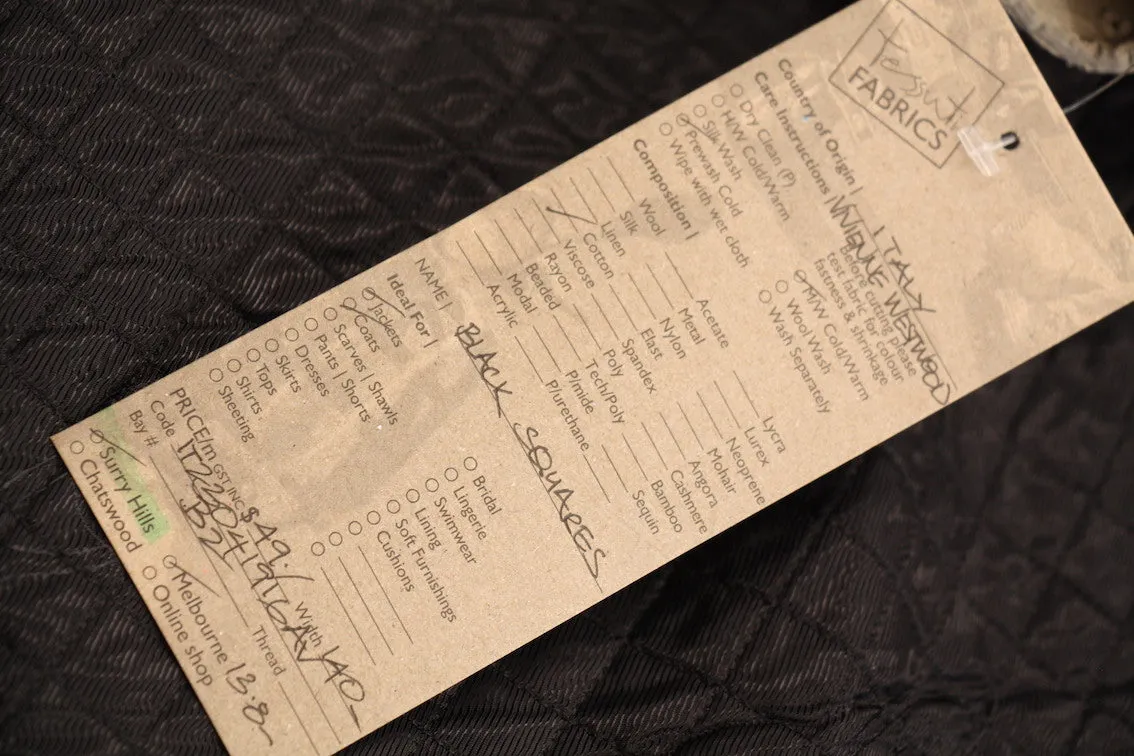 Tessuti
FABRICS
Country of Origin | ITALY
Care Instructions | VIVIENNE WESTWOOD
Dry Clean (P)
H/W Cold/Warm
Silk Wash
Prewash Cold
Wipe with wet cloth
Before cutting please
test fabric for colour
fastness & shrinkage
M/W Cold/Warm
Wool Wash
Wash Separately
Composition |
Wool
Silk
Linen
Cotton
Viscose
Rayon
Beaded
Modal
Acrylic
Acetate
Metal
Nylon
Elast
Spandex
Poly
Tech/Poly
P/mide
P/urethane
Lycra
Lurex
Neoprene
Mohair
Angora
Cashmere
Bamboo
Sequin
NAME | BLACK SQUARES
Ideal For |
Jackets
Coats
Scarves | Shawls
Pants | Shorts
Dresses
Skirts
Tops
Shirts
Sheeting
Bridal
Lingerie
Swimwear
Lining
Soft Furnishings
Cushions
PRICE/m GST INC $49./ Width 140
Code
Bay # B2 Thread
Surry Hills
Chatswood
Melbourne 13.8
Online shop